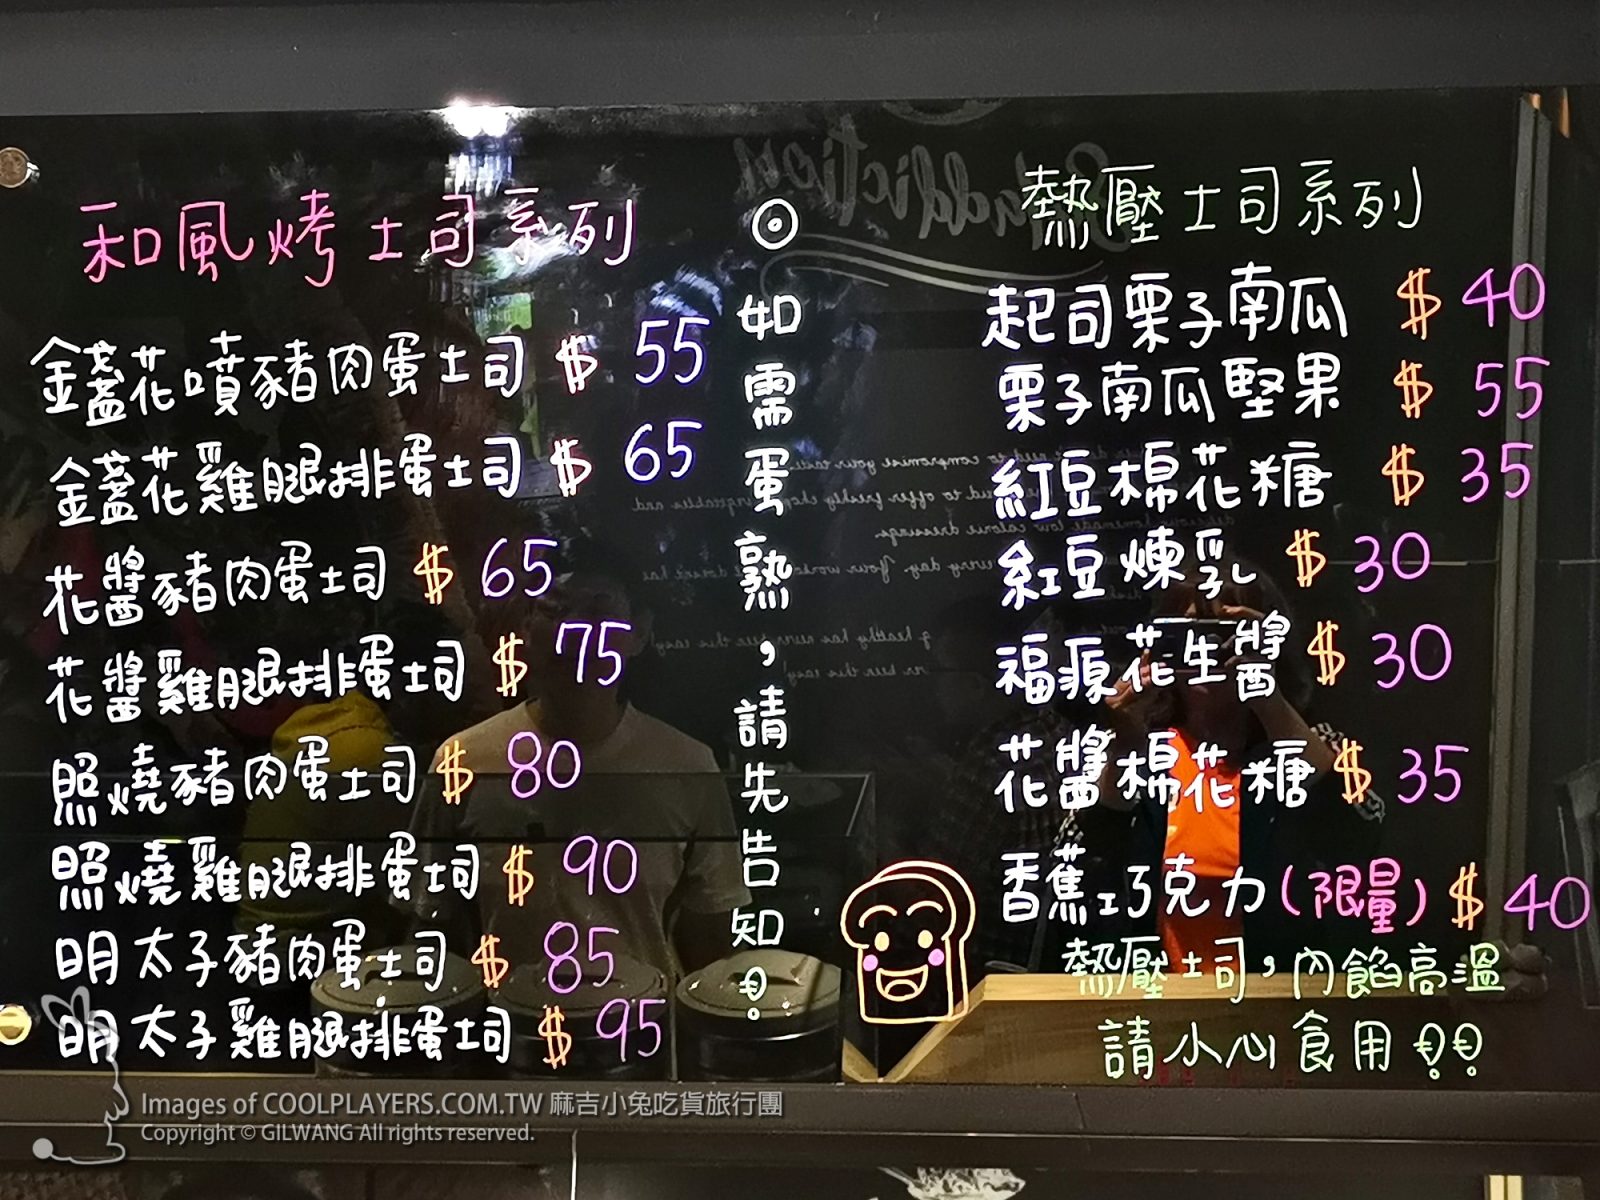 和風烤土司系列
金盞花噴豬肉蛋土司 $ 55
金盞花雞腿排蛋土司 $ 65
花醬豬肉蛋土司 $ 65
花醬雞腿排蛋土司 $ 75
照燒豬肉蛋土司 $ 80
照燒雞腿排蛋土司 $ 90
明太子豬肉蛋土司 $ 85
明太子雞腿排蛋土司 $ 95
◎如需蛋熟，請先告知!
熱壓土司系列
起司栗子南瓜 $ 40
栗子南瓜堅果 $ 55
紅豆棉花糖 $ 35
紅豆煉乳 $ 30
福源花生醬 $ 30
花醬棉花糖 $ 35
香蕉巧克力(限量) $ 40
熱壓土司，內餡高溫
請小心食用!!
Images of COOLPLAYERS.COM.TW 麻吉小兔吃貨旅行團
Copyright © GILWANG All rights reserved.